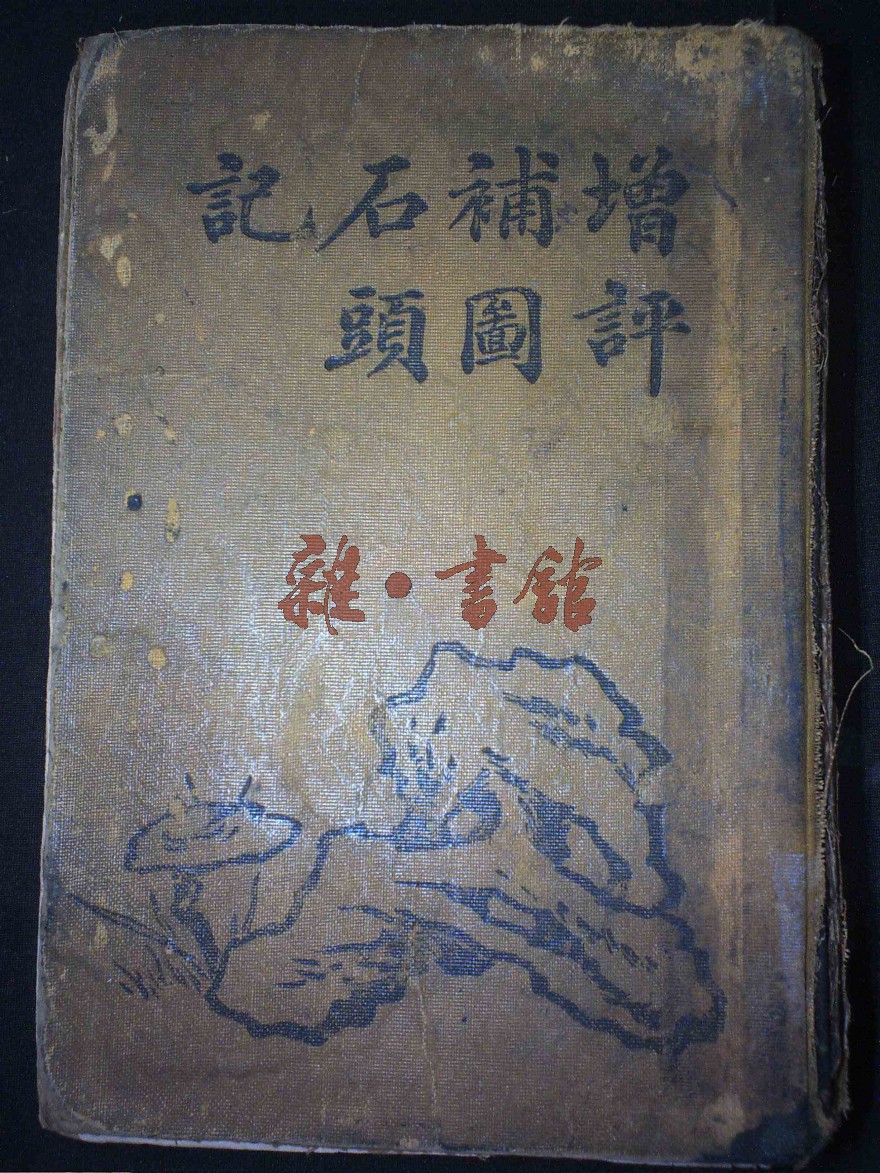 增評
補圖
石頭
記
雜·書館